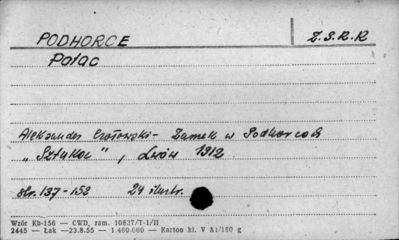 PODHORCE Z.S.R.R
Pałac
Aleksander Czołowski - Zamek w Podhorcach
"Sztuka", Lwów 1912
str. 137-152 24 ilustr.
Wzór Kb-156 — CWD, zam. 10837/T-1/II
2445 — Łak —23.8.55 — 1.400.000 — Karton kl. V A1/180 g